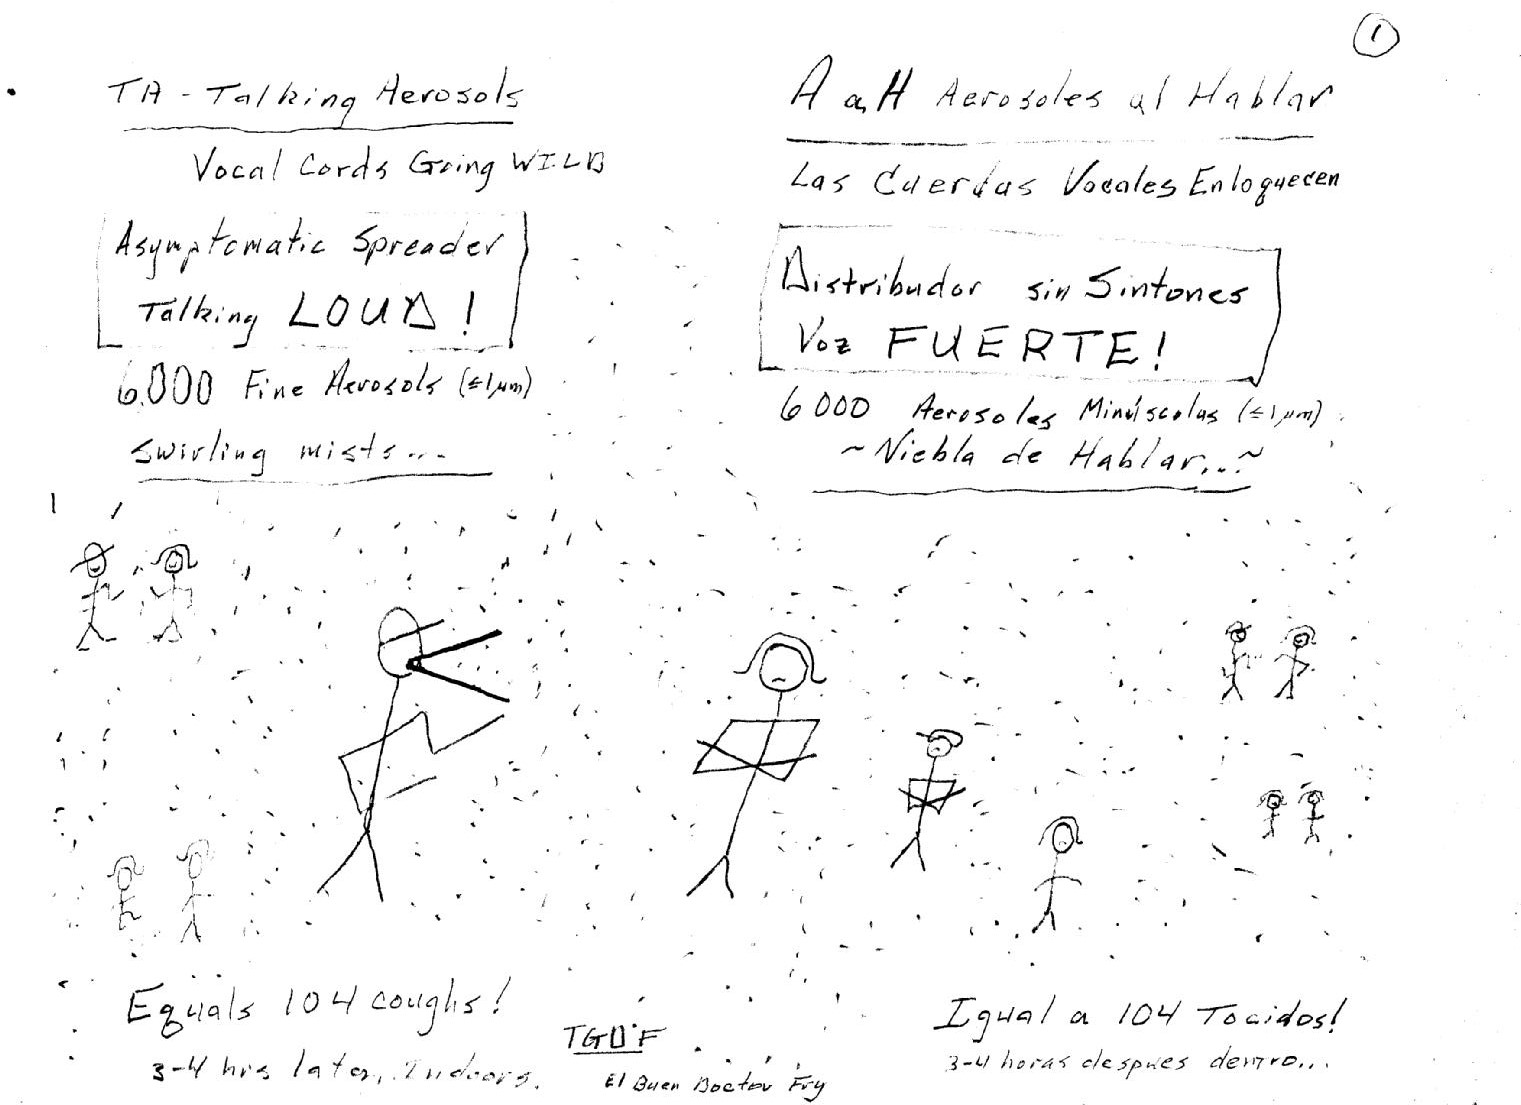 1
TA - Talking Aerosols
Vocal Cords Going WILD
Asymptomatic Spreader
Talking LOUD!
6,000 Fine Aerosols (≤1µm)
swirling mists...
A a H Aerosoles al Hablar
Las Cuerdas Vocales Enloquecen
Distribudor sin Sintones
Voz FUERTE!
6000 Aerosoles Minúsculas (≤1µm)
~Niebla de Hablar...~
Equals 104 coughs!
3-4 hrs later, Indoors.
TGD'F
El Buen Doctor Fry
Igual a 104 Tocidos!
3-4 horas despues dentro...